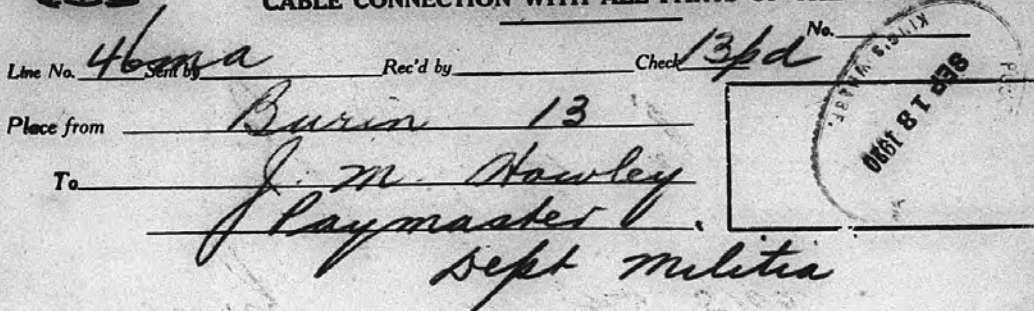 CABLE CONNECTION WITH ALL PARTS OF THE
No.
Line No. 46 Sent by ma Rec'd by Check 13pd
Place from Burin 13
To J. M. Howley
Paymaster
Dept Militia
KING'S WHARF.
SEP 18 1920